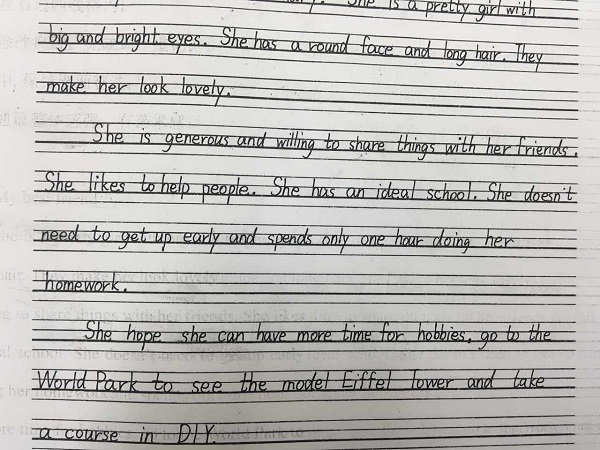 She is a pretty girl with
big and bright eyes. She has a round face and long hair. They
make her look lovely.
She is generous and willing to share things with her friends.
She likes to help people. She has an ideal school. She doesn't
need to get up early and spends only one hour doing her
homework.
She hope she can have more time for hobbies, go to the
World Park to see the model Eiffel Tower and take
a course in DIY.